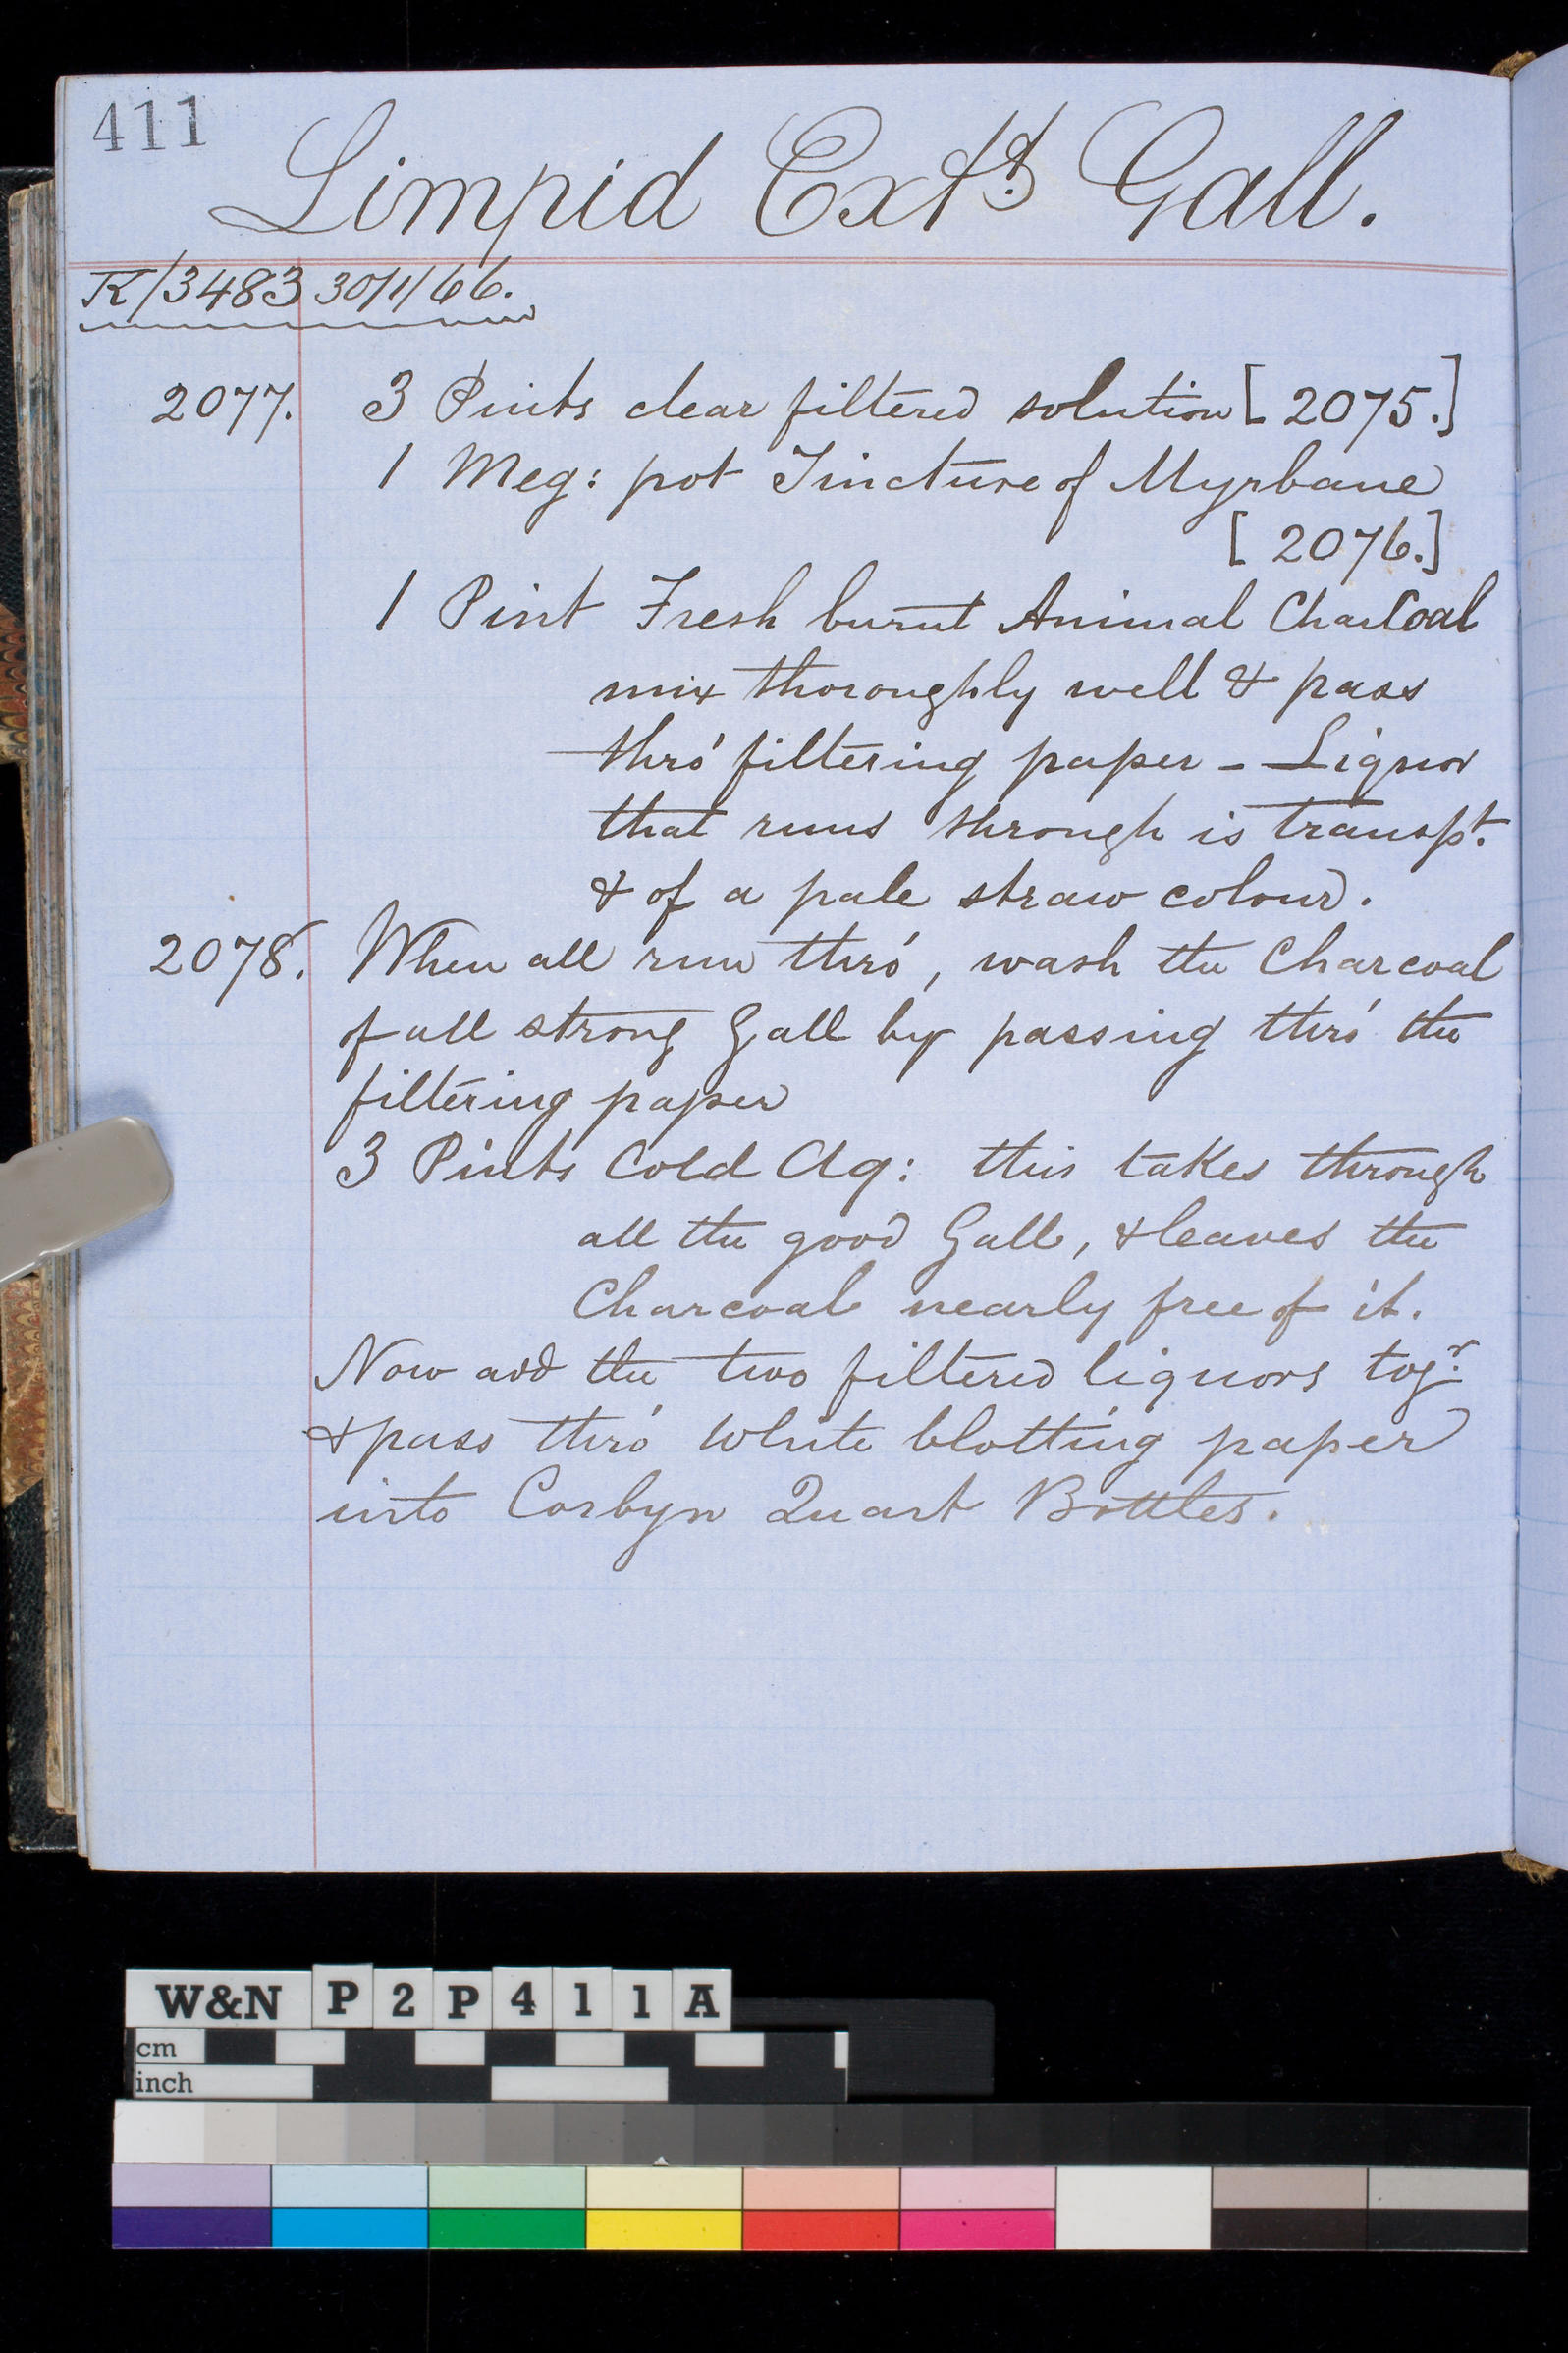 411
Limpid Ext. Gall.
K/3483 30/1/66.
2077. 3 Pints clear filtered solution [2075.]
1 Meg: pot Tincture of Myrbane
[2076.]
1 Pint Fresh burnt Animal Charcoal
mix thoroughly well & pass
thro' filtering paper - Liquor
that runs through is transpt.
& of a pale straw colour.
2078. When all run thro', wash the Charcoal
of all strong Gall by passing thro' the
filtering paper
3 Pints Cold Aq: this takes through
all the good Gall, & leaves the
Charcoal nearly free of it.
Now add the two filtered liquors togr.
& pass thro' white blotting paper
into Corbyn Quart Bottles.
W&N P2P411A
cm
inch